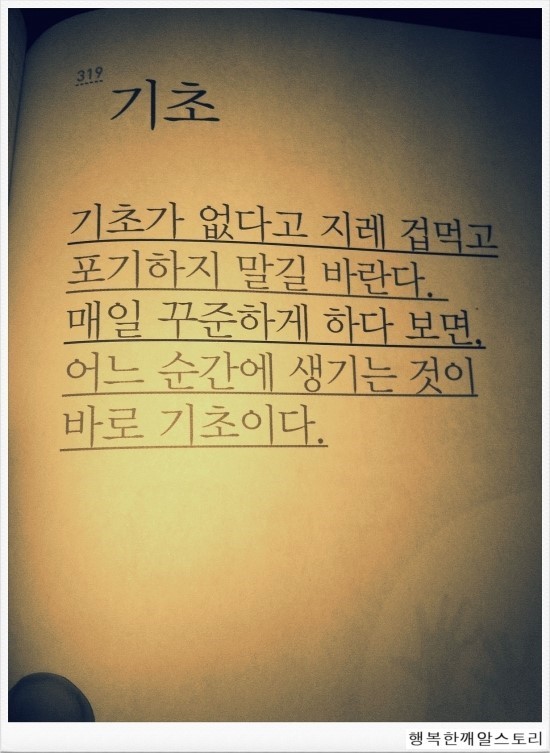 319
기초
기초가 없다고 지레 겁먹고
포기하지 말길 바란다.
매일 꾸준하게 하다 보면,
어느 순간에 생기는 것이
바로 기초이다.
행복한깨알스토리